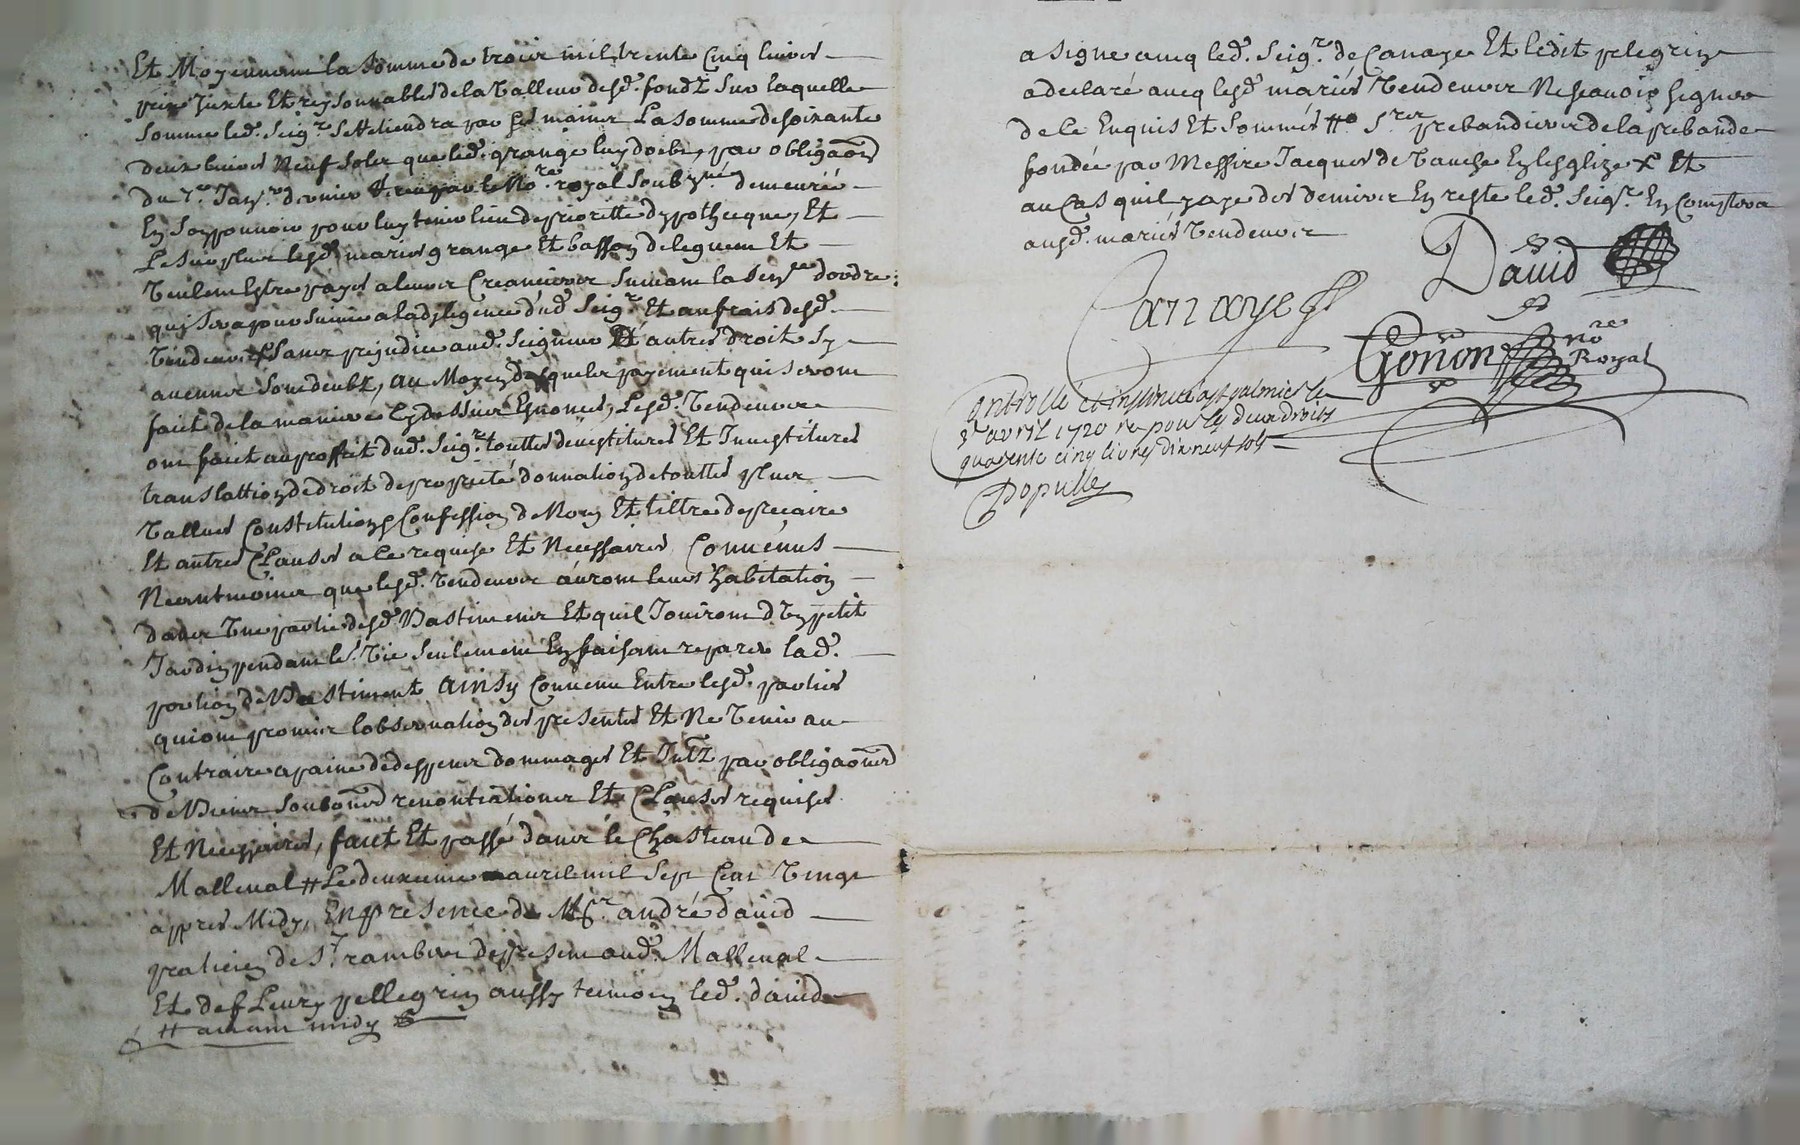 Et Moyennant la somme de trois mil trente Cinq livres
prix juste Et raysonnables de la Valleur desd. fondz sur laquelle
somme led. Seigr. Settiendra par ses mains La somme de soixante
deux livres Neuf sols que led. grange luy doibt, par obligaōn
du 7e Janr. dernier receu par le Nore. royal soubzne. demeurée
En son pouvoir pour luy tenir lieu de prioritté dypothecque, Et
Le surplus lesd. mariés grange Et basson deleguent Et
Veulent Estre payés a leurs Creanciers suivant la sence. dordre
qui sera poursuivie a la diligence dud. Seigr. Et aux frais desd.
Vendeurs sans prejudice aud. Seigneur Et autres droit sy
aucuns sont deubz, au Moyen desquels payement qui seront
faits de la maniere Cy dessus Enoncés, Lesd. Vendeurs
ont faict au proffit dud. Seigr. touttes devestitures Et Investitures
translattion de droit de propriété donnation de touttes plus
Vallues Constitutions Confession de Nom Et tiltre de precaire
Et autres Clauses a ce requise Et Necessaires, Convenus
Neantmoins que lesd. Vendeurs auront leurs habitation
dans Une partie desd. Bastiments Et quil Jouiront dUn petit
Jardin pendant le. Vie seulement En faisant reparer lad.
portion de Bastiment ainsy Convenu Entre lesd. parties
qui ont promis lobservation des presentes Et Ne Venir au
Contraire a paine de despens dommages Et Intz par obligaōns
de Biens soubōns renontiations Et Clauses requises
Et Necessaires, faict Et passé dans le Chasteau de
Mallenal # Le deuxieme avril mil sept Cent Vingt
appres Midy, En presence de Mr. andré david
praticien de St. rambert de present aud. Mallenal
Et de fleury pellegrin aussy temoin led. david
# avant midy
a signe aveq led. Seigr. de Canaye Et ledit pelegrin
a declaré aveq lesd. mariés Vendeurs Ne scavoir signer
de ce Enquis Et sommés # Srs. prebandiers de la prebande
fondée par Messire Jacques de Vauche En lesglize + Et
au Cas quil paye des deniers En reste led. Seigr. En Comptera
ausd. mariés Vendeurs
David
Canaye
Gonon nore Royal
Controllé et insinué a st galmier le
3e avril 1720 re pour les deux droits
quarente cinq livres dixneuf sols
Dopulle